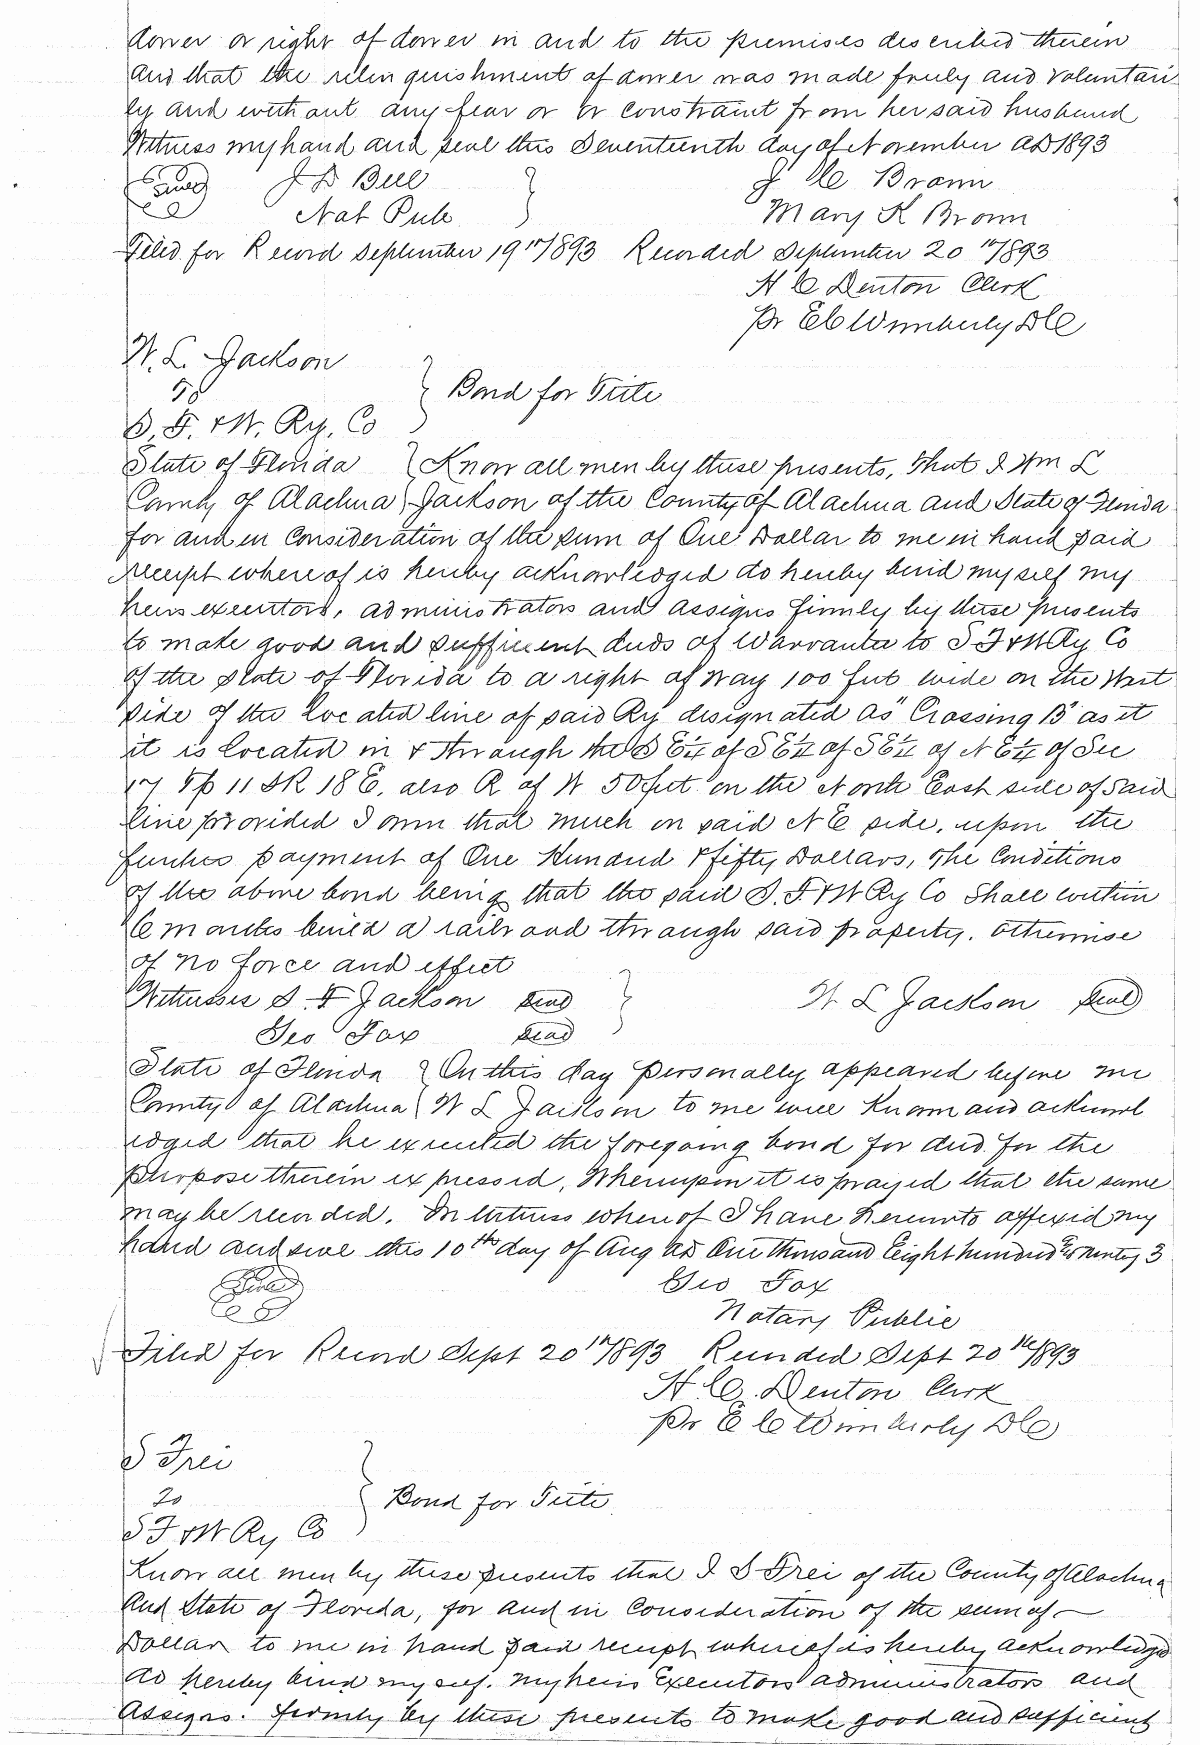 dower or right of dower in and to the premises described therein
And that the relin quishment of dower was made freely and voluntari
ly and without any fear or or constraint from her said husband
Witness my hand and seal this Seventeenth day of November AD 1893
Seal J D Bell } J C Brown
Not Pub Mary K Brown
Filed for Record September 19th/893 Recorded September 20th/893
H C Denton Clerk
Pr E C Wimberly D C
W. L. Jackson
To } Bond for Title
S. F. & W. Ry. Co
State of Florida } Know all men by these presents, That I Wm L
County of Alachua } Jackson of the County of Alachua and State of Florida
for and in Consideration of the sum of One Dollar to me in hand paid
receipt where of is hereby acknowledged do hereby bind myself my
heirs executors, administrators and assigns firmly by these presents
to make good and sufficient deeds of Warranta to S F & W Ry Co
of the State of Florida to a right of way 100 feet wide on the West
side of the located line of said Ry designated as "Crossing B" as it
it is located in & through the S E 1/4 of S E 1/4 of S E 1/4 of N E 1/4 of Sec
17 Tp 11 S R 18 E. also R of W 50 feet on the North East side of said
line provided I own that much on said N E side, upon the
further payment of One Hundred & fifty Dollars, The Conditions
of the above bond being that the said S. F. & W Ry Co Shall within
6 months build a railroad through said property. otherwise
of no force and effect
Witnesses S. F Jackson Seal } W L Jackson Seal
Geo Fox Seal
State of Florida } On this day personally appeared before me
County of Alachua } W L Jackson to me well Known and acknowl
edged that he executed the foregoing bond for deed for the
purpose therein expressed, Whereupon it is prayed that the same
may be recorded. In witness where of I have hereunto affixed my
hand and seal this 10th day of Aug AD One thousand Eight hundred & Ninety 3
Seal Geo Fox
Notary Public
Filed for Record Sept 20th/893 Recorded Sept 20th/893
H. C. Denton Clerk
Pr E C Wimberly D C
S Frei
To } Bond for Title
S F & W Ry Co
Know all men by these presents that I S Frei of the County of Alachua
And State of Florida, for and in Consideration of the sum of —
Dollar to me in hand paid receipt whereof is hereby acknowledged
do hereby bind my self. my heirs Executors administrators and
Assigns. firmly by these presents to make good and sufficient